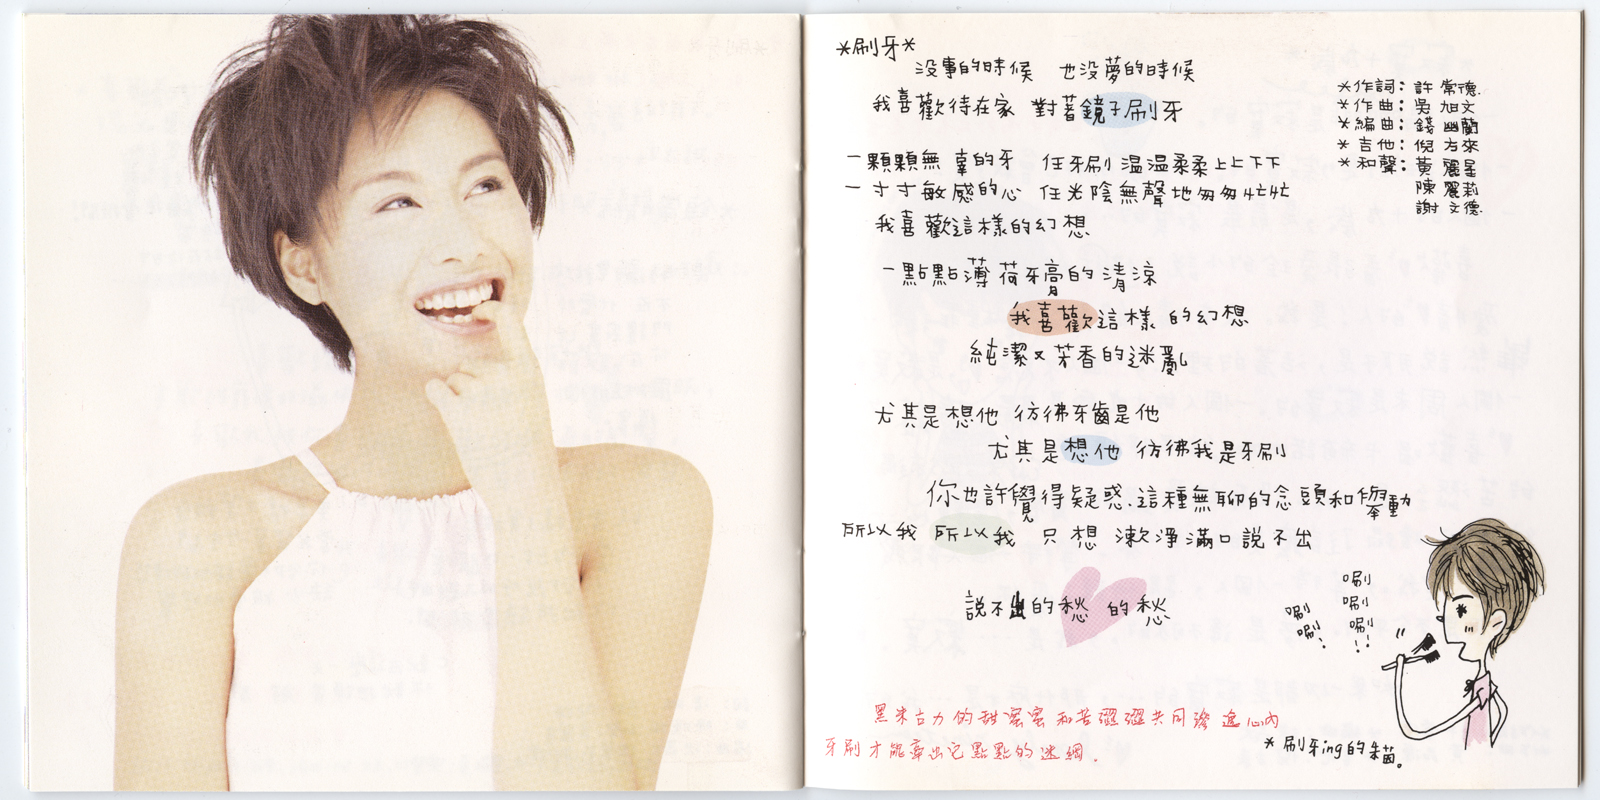 *刷牙*
没事的時候 也没夢的時候
我喜歡待在家 對著鏡子刷牙
一顆顆無辜的牙 任牙刷溫溫柔柔上上下下
一寸寸敏感的心 任光陰無聲地匆匆忙忙
我喜歡這樣的幻想
一點點薄荷牙膏的清涼
我喜歡這樣的幻想
純潔又芳香的迷亂
尤其是想他 彷彿牙齒是他
尤其是想他 彷彿我是牙刷
你也許覺得疑惑.這種無聊的念頭和舉動
所以我 所以我 只想 漱淨滿口說不出
說不出的愁 的愁
*作詞:許常德.
*作曲:吳旭文
*編曲:錢幽蘭
*吉他:倪方來
*和聲:黃麗星
陳麗莉
謝文德.
唰
唰
唰!!
唰
唰!
黑朱古力的甜蜜蜜和苦澀澀共同
心內
牙刷才能
點點的迷網.
*刷牙ing的貓。